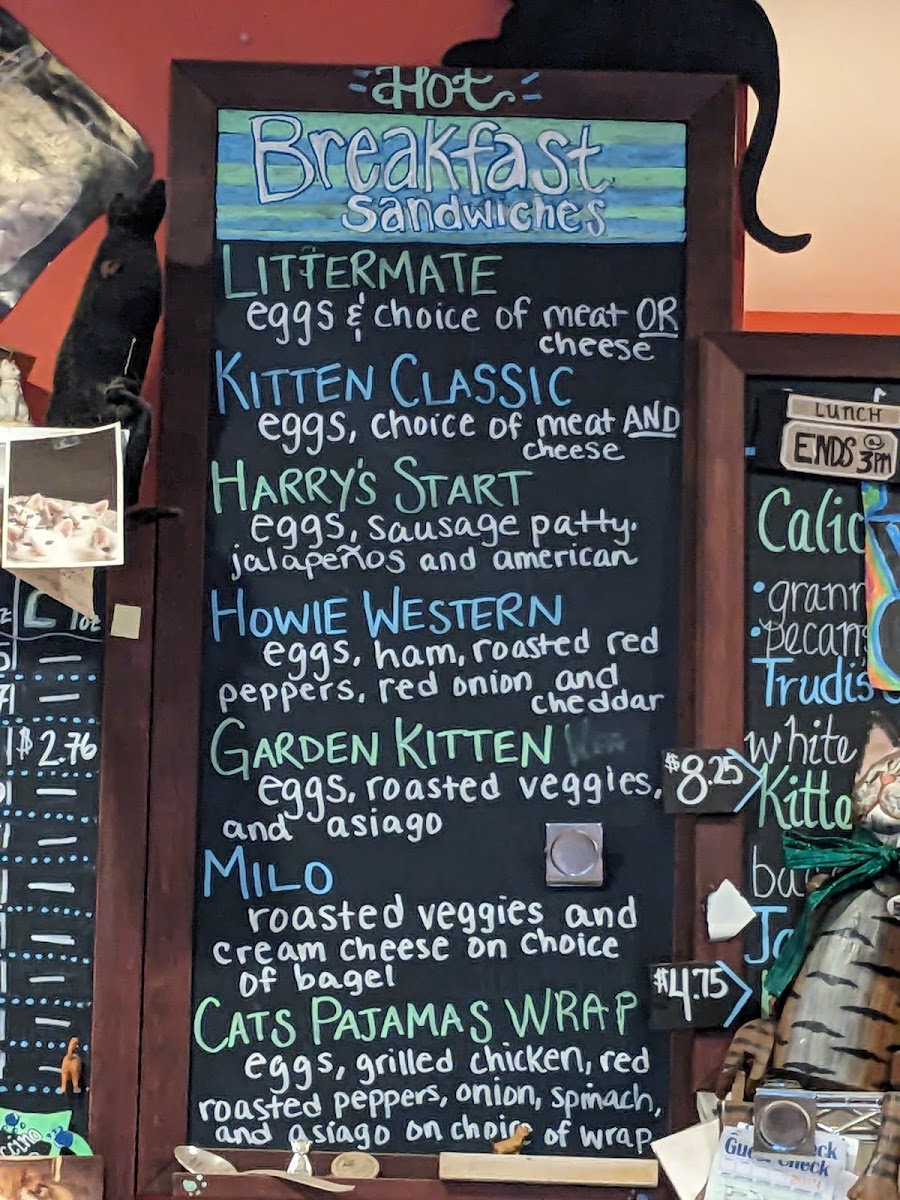 Hot
Breakfast
Sandwiches
LITTERMATE
eggs & choice of meat OR
cheese
KITTEN CLASSIC
eggs, choice of meat AND
cheese
HARRY'S START
eggs, sausage patty,
jalapeños and american
HOWIE WESTERN
eggs, ham, roasted red
peppers, red onion and
cheddar
GARDEN KITTEN
eggs, roasted veggies,
and asiago
MILO
roasted veggies and
cream cheese on choice
of bagel
CATS PAJAMAS WRAP
eggs, grilled chicken, red
roasted peppers, onion, spinach,
and asiago on choice of wrap
$2.76
$8.25
$4.75
LUNCH
ENDS @
3PM
Calic
grann
pecans
Trudi's
white
Kitte
Check